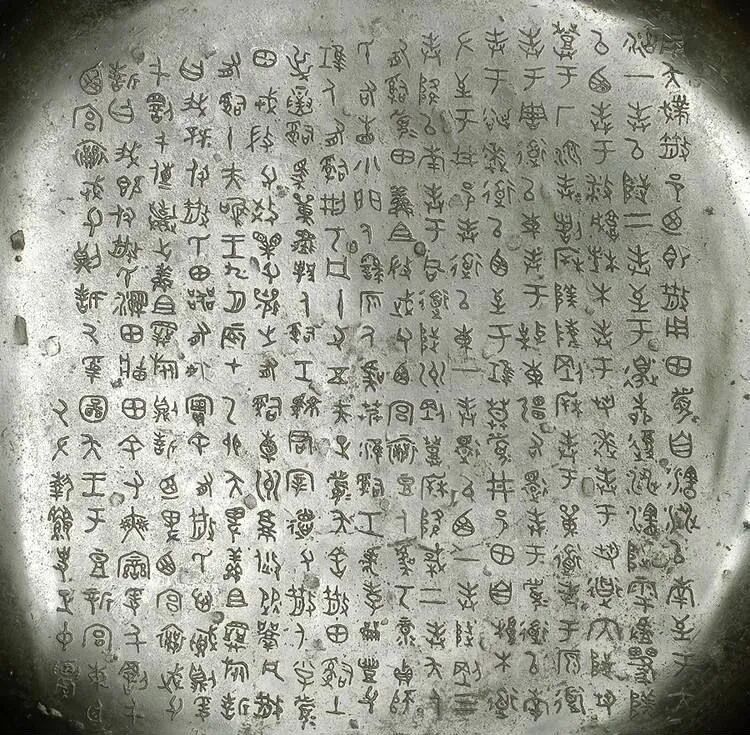 用夨𢧢散邑乃即散用田眉自瀗涉以南至于大
沽一封以陟二封至于邊柳復涉瀗陟雩
以西封于敝城楮木封于芻逨封于芻道內陟芻
登于厂湶封諸𣏟陵陵剛𣏟封于單道封于原道
封于周道以東封于東疆右還封于眉道以南
封于逨道以西至于堆莫眉井邑田自桹木道
左至于井邑封道以東一封還以西一封陟剛三
封降以南封于同道陟州剛登𣏟降棫二封夨人
有司眉田鮮且微武父西宮襄豆人虞丂彔貞師
氏右眚小門人繇原人虞艿淮司工虎孝龠豐父
堆人有司刑丂凡十又五夫正眉夨舍散田司土
屰寅司馬單堒邦人司工君宰德父散人小子眉
田戎微父效果父襄之有司橐州就焂從凡散
有司十夫唯王九月辰才乙卯夨卑鮮且旅誓
曰我既付散氏田器有爽實余有散氏心賊則爰
千罰千傳棄之鮮且旅則誓乃卑西宮襄武父
誓曰我既付散氏濕田畛田余又爽變爰千罰千
西宮襄武父則誓厥受圖夨王于豆新宮東廷
厥左執縷史正中農